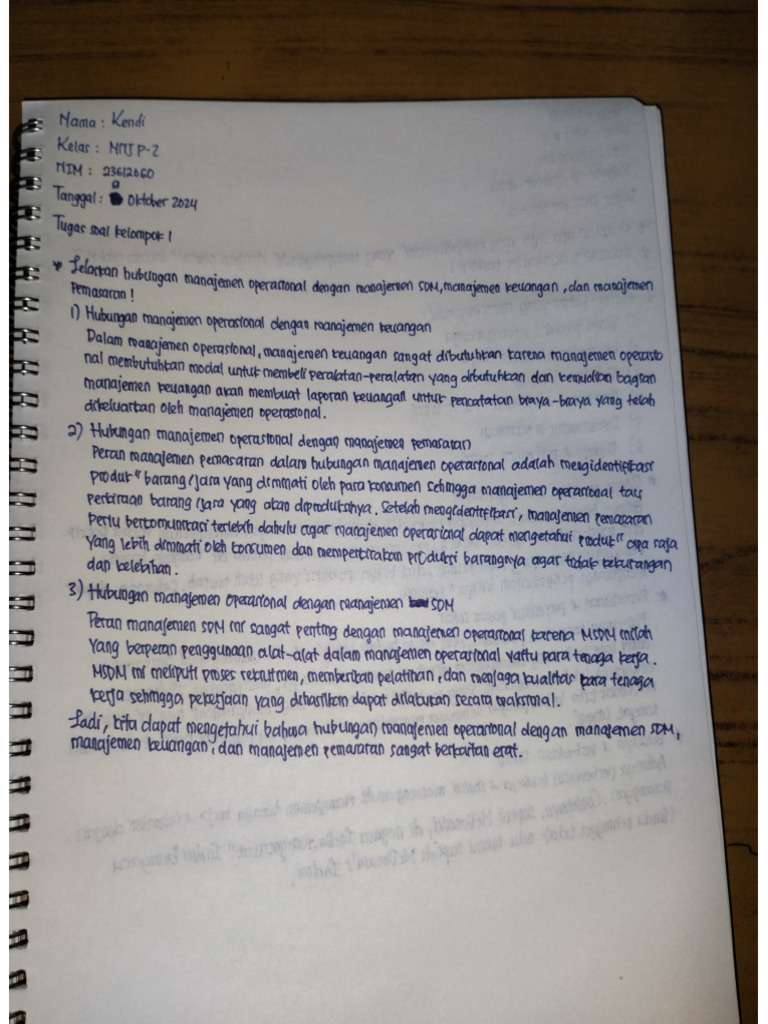 Nama : Kendi
Kelas : MNJ P-2
NIM : 23612060
Tanggal : Oktober 2024
Tugas soal kelompok 1
* Jelaskan hubungan manajemen operasional dengan manajemen SDM, manajemen keuangan, dan manajemen
Pemasaran !
1) Hubungan manajemen operasional dengan manajemen keuangan
Dalam manajemen operasional, manajemen keuangan sangat dibutuhkan karena manajemen operasio
nal membutuhkan modal untuk membeli peralatan-peralatan yang dibutuhkan dan kemudian bagian
manajemen keuangan akan membuat laporan keuangan untuk pencatatan biaya-biaya yang telah
dikeluarkan oleh manajemen operasional.
2) Hubungan manajemen operasional dengan manajemen pemasaran
Peran manajemen pemasaran dalam hubungan manajemen operasional adalah mengidentifikasi
produk" barang/jasa yang diminati oleh para konsumen sehingga manajemen operasional tau
perkiraan barang/jasa yang akan diproduksinya. Setelah mengidentifikasi, manajemen pemasaran
perlu berkomunikasi terlebih dahulu agar manajemen operasional dapat mengetahui produk" apa saja
yang lebih diminati oleh konsumen dan memperkirakan produksi barangnya agar tidak kekurangan
dan kelebihan.
3) Hubungan manajemen operasional dengan manajemen SDM
Peran manajemen SDM ini sangat penting dengan manajemen operasional karena MSDM inilah
yang berperan penggunaan alat-alat dalam manajemen operasional yaitu para tenaga kerja.
MSDM ini meliputi proses rekrutmen, memberikan pelatihan, dan menjaga kualitas para tenaga
kerja sehingga pekerjaan yang dihasilkan dapat dilakukan secara maksional.
Jadi, kita dapat mengetahui bahwa hubungan manajemen operasional dengan manajemen SDM,
manajemen keuangan, dan manajemen pemasaran sangat berkaitan erat.